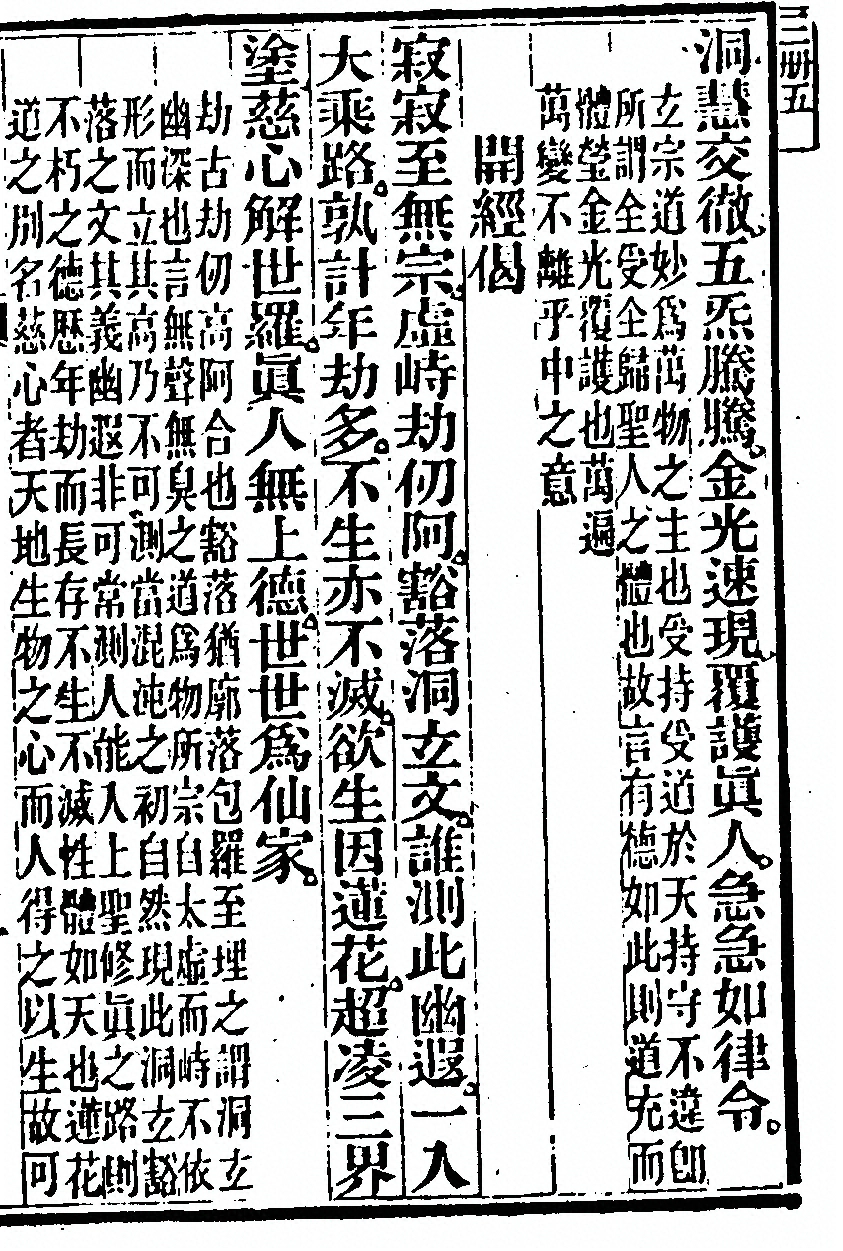 三卌五
洞慧交徹。五炁騰騰。金光速現。覆護眞人。急急如律令。
玄宗道妙爲萬物之主也受持受道於天持守不違卽
所謂全受全歸聖人之體也故言有德如此則道充而
體瑩金光覆護也萬遍
萬變不離乎中之意
開經偈
寂寂至無宗。虛峙劫仞阿。豁落洞玄文。誰測此幽遐。一入
大乘路。孰計年劫多。不生亦不滅。欲生因蓮花。超凌三界
塗。慈心解世羅。眞人無上德。世世爲仙家。
劫古劫仞高阿合也豁落猶廓落包羅至理之謂洞玄
幽深也言無聲無臭之道爲物所宗自太虛而峙不依
形而立其高乃不可測當混沌之初自然現此洞玄豁
落之文其義幽遐非可常測人能入上聖修眞之路則
不朽之德歷年劫而長存不生不滅性體如天也蓮花
道之別名慈心者天地生物之心而人得之以生故可